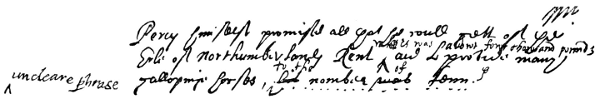 Percy himselfe promised all that he could gett of the
Erle of Northumberlands Rent and to provide many
which was aboute foure thousand pounds
galloping horses, his number was Tenn.
to the of
uncleare phrase